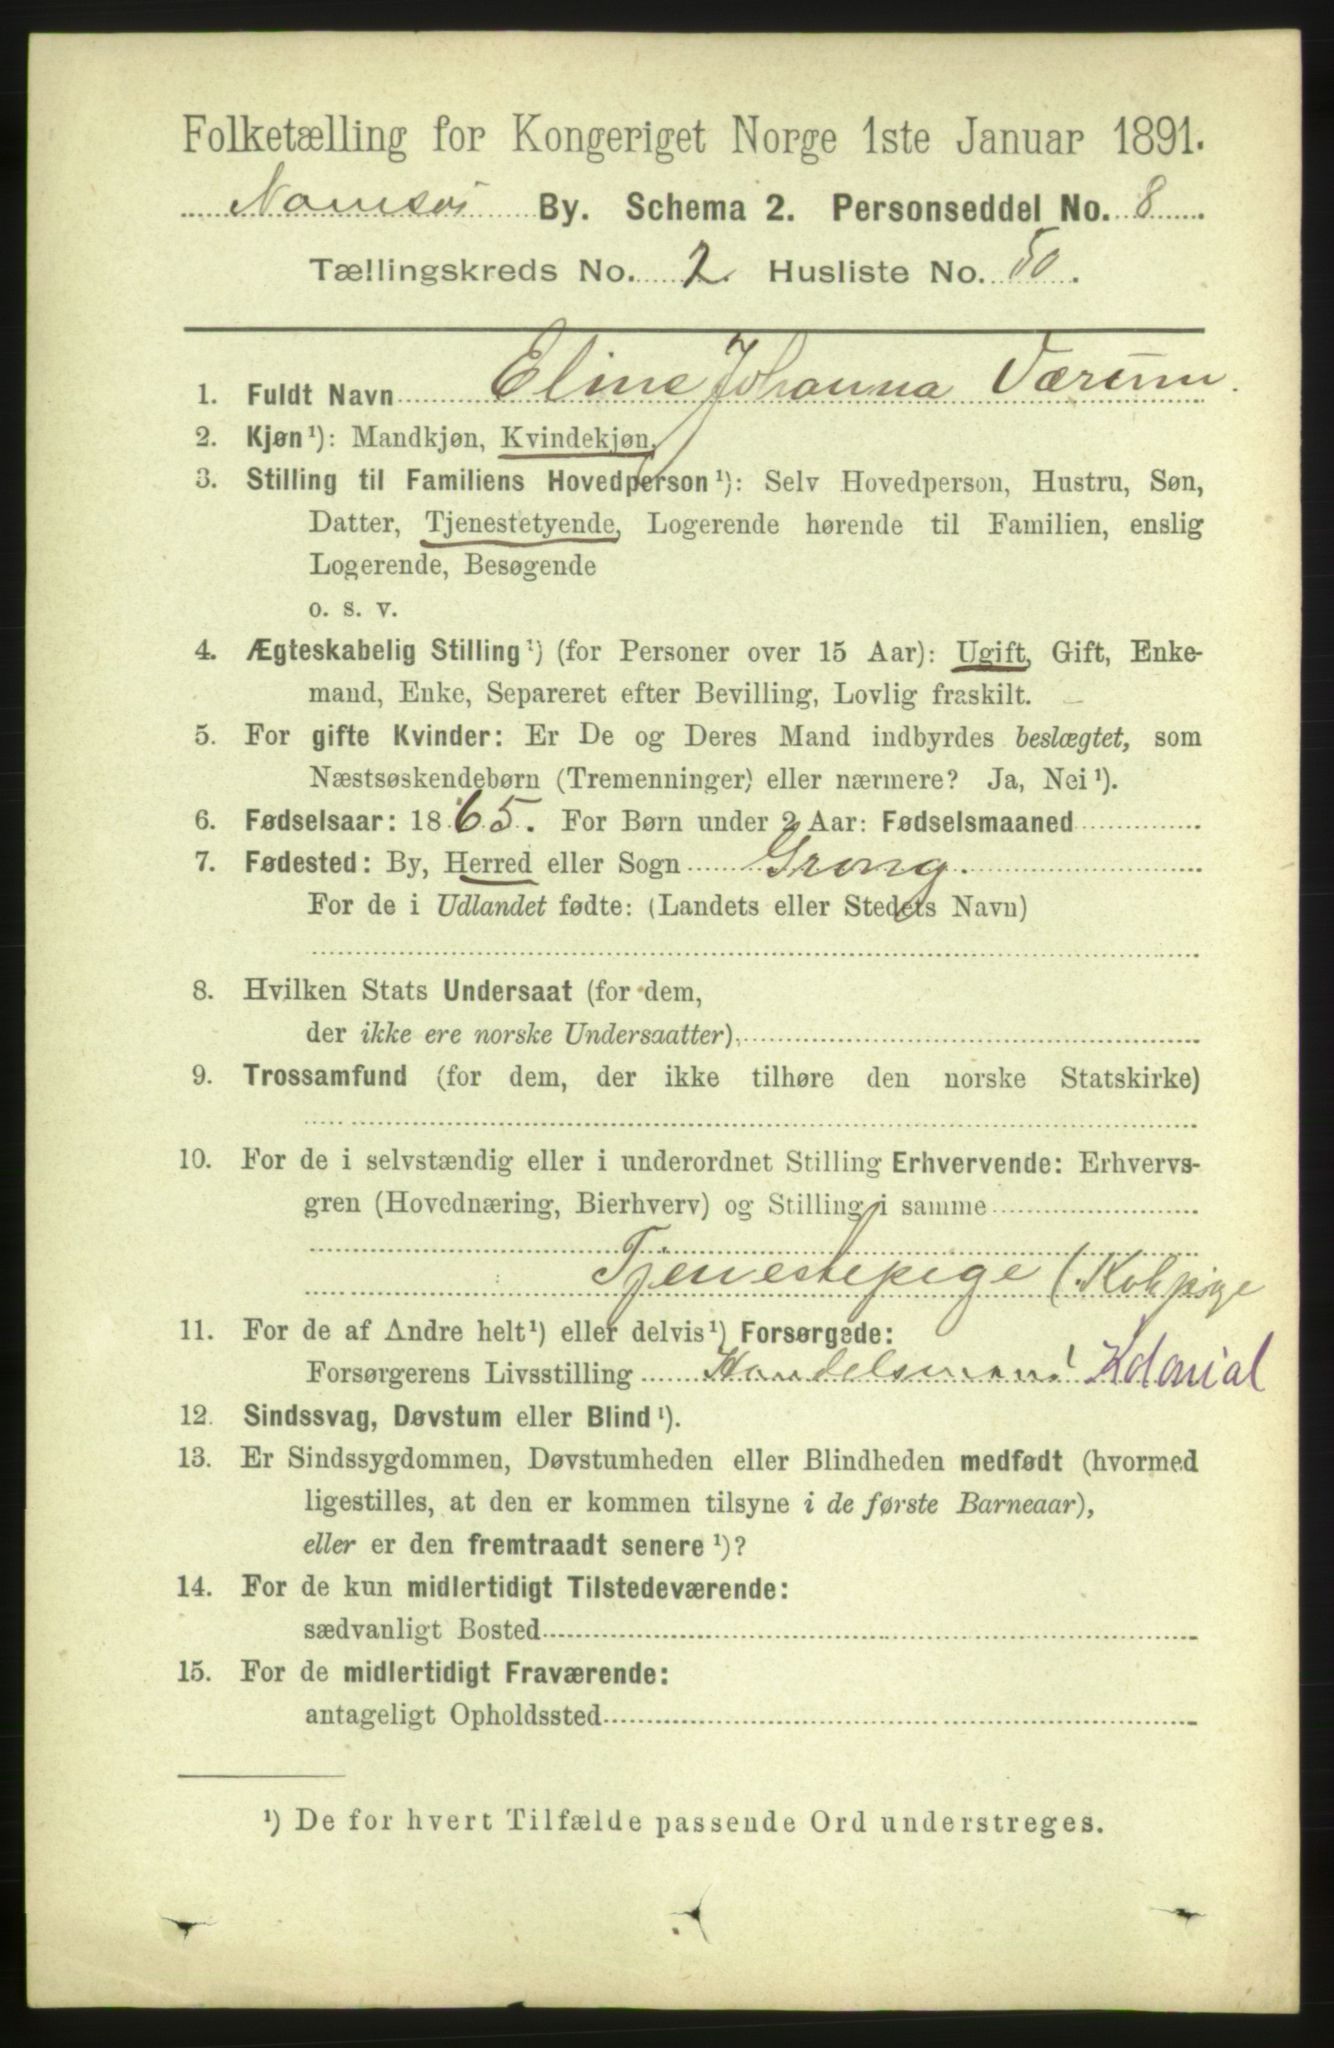 Folketælling for Kongeriget Norge 1ste Januar 1891.
Namsos By. Schema 2. Personseddel No. 8
Tællingskreds No. 2. Husliste No. 50.
1. Fuldt Navn Eline Johanna Værum.
2. Kjøn¹): Mandkjøn, Kvindekjøn.
3. Stilling til Familiens Hovedperson¹): Selv Hovedperson, Hustru, Søn,
Datter, Tjenestetyende, Logerende hørende til Familien, enslig
Logerende, Besøgende
o. s. v.
4. Ægteskabelig Stilling¹) (for Personer over 15 Aar): Ugift, Gift, Enke-
mand, Enke, Separeret efter Bevilling, Lovlig fraskilt.
5. For gifte Kvinder: Er De og Deres Mand indbyrdes beslægtet, som
Næstsøskendebørn (Tremenninger) eller nærmere? Ja, Nei¹).
6. Fødselsaar: 1865. For Børn under 2 Aar: Fødselsmaaned
7. Fødested: By, Herred eller Sogn Grong.
For de i Udlandet fødte: (Landets eller Stedets Navn)
8. Hvilken Stats Undersaat (for dem,
der ikke ere norske Undersaatter)
9. Trossamfund (for dem, der ikke tilhøre den norske Statskirke)
10. For de i selvstændig eller i underordnet Stilling Erhvervende: Erhvervs-
gren (Hovednæring, Bierhverv) og Stilling i samme
Tjenestepige (Kokpige
11. For de af Andre helt¹) eller delvis¹) Forsørgede:
Forsørgerens Livsstilling Handelsmand Kolonial
12. Sindssvag, Døvstum eller Blind¹).
13. Er Sindssygdommen, Døvstumheden eller Blindheden medfødt (hvormed
ligestilles, at den er kommen tilsyne i de første Barneaar),
eller er den fremtraadt senere¹)?
14. For de kun midlertidigt Tilstedeværende:
sædvanligt Bosted
15. For de midlertidigt Fraværende:
antageligt Opholdssted
¹) De for hvert Tilfælde passende Ord understreges.